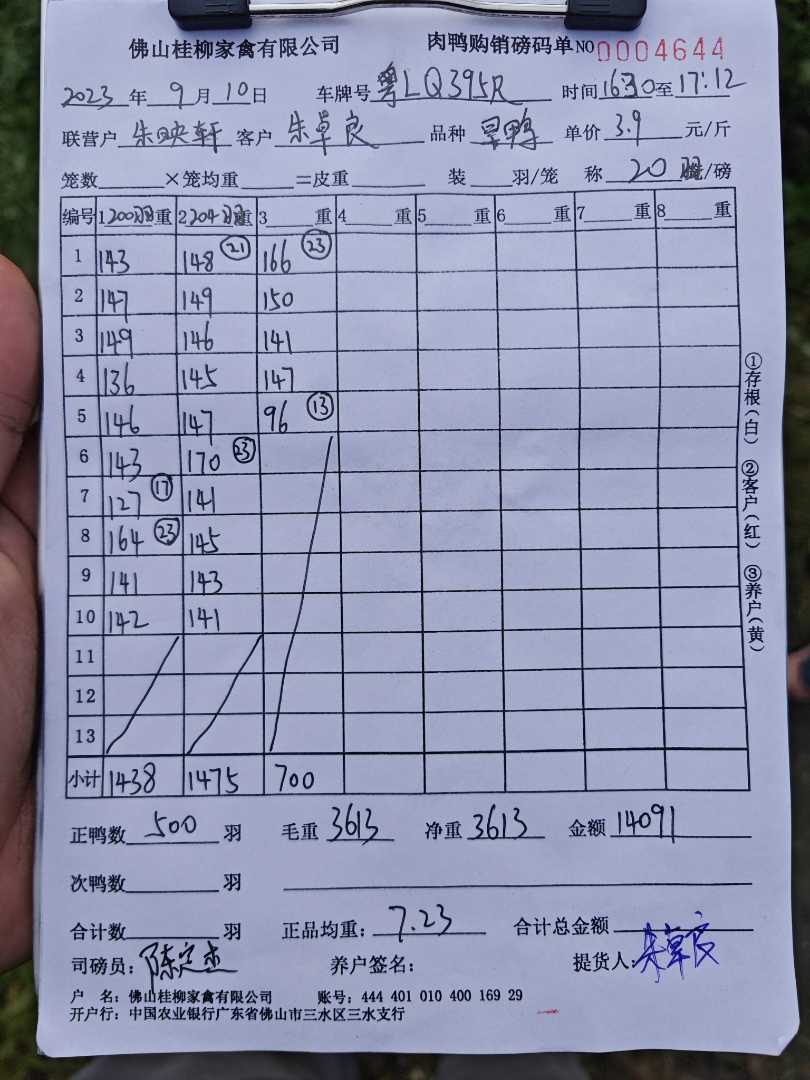 佛山桂柳家禽有限公司 肉鸭购销磅码单NO 0004644
2023年 9月 10日 车牌号 粤LQ395R 时间 16:30至 17:12
联营户 朱映轩 客户 朱卓良 品种 旱鸭 单价 3.9 元/斤
笼数______×笼均重______=皮重______ 装____羽/笼 称 20 羽/磅
编号 1 200羽重 2 204羽重 3____重 4____重 5____重 6____重 7____重 8____重
1 143 148 (21) 166 (23)
2 147 149 150
3 149 146 141
4 136 145 147
5 146 147 96 (13)
6 143 170 (23)
7 127 (17) 141
8 164 (23) 145
9 141 143
10 142 141
11
12
13
小计 1438 1475 700
正鸭数 500 羽 毛重 3613 净重 3613 金额 14091
次鸭数______羽
合计数______羽 正品均重: 7.23 合计总金额
司磅员: 陈定杰 养户签名: 提货人: 朱卓良
户 名: 佛山桂柳家禽有限公司 账号: 444 401 010 400 169 29
开户行: 中国农业银行广东省佛山市三水区三水支行
①存根(白) ②客户(红) ③养户(黄)